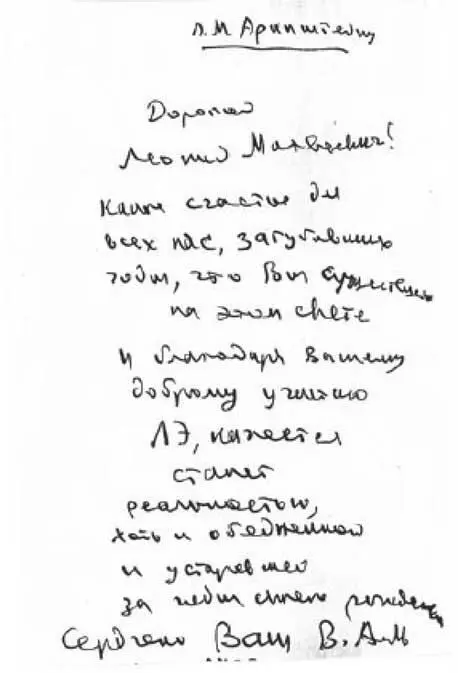 Л.М Аринштейну
Дорогой
Леонид Матвеевич!
Какое счастье для
всех нас, загубивших
годы, что Вы существуете
на этом свете
и благодаря Вашему
доброму участию
ЛЭ, кажется
станет
реальностью,
хоть и обедненной
и устаревшей
за годы своего рождения
Сердечно Ваш В. А